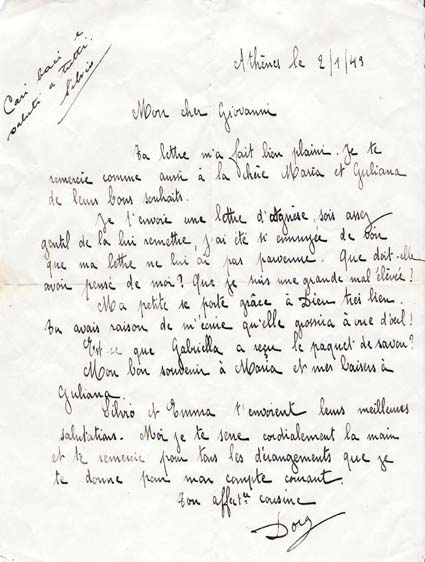 Cari baci e
saluti a tutti
Silvio
Athènes le 2/1/43
Mon cher Giovanni
Ta lettre m'a fait bien plaisir. Je te
remercie comme aussi à la chère Maria et Guliana
de leurs bons souhaits.
Je t'envoie une lettre d'Agnèse, sois assez
gentil de la lui remettre, j'ai été si ennuyée de voir
que ma lettre ne lui ai pas parvenue. Que doit-elle
avoir pensé de moi? Que je suis une grande mal élevée!
Ma petite se porte grâce à Dieu très bien.
Tu avais raison de m'écrire qu'elle grossira à vue d'oeil!
Est-ce que Gabriella a reçu le paquet de savon?
Mon bon souvenir à Maria et mes baisers à
Guliana.
Silvio et Emma t'envoient leurs meilleures
salutations. Moi je te serre cordialement la main
et te remercie pour tous les dérangements que je
te donne pour mon compte courant.
Ton affect. cousine
Dory